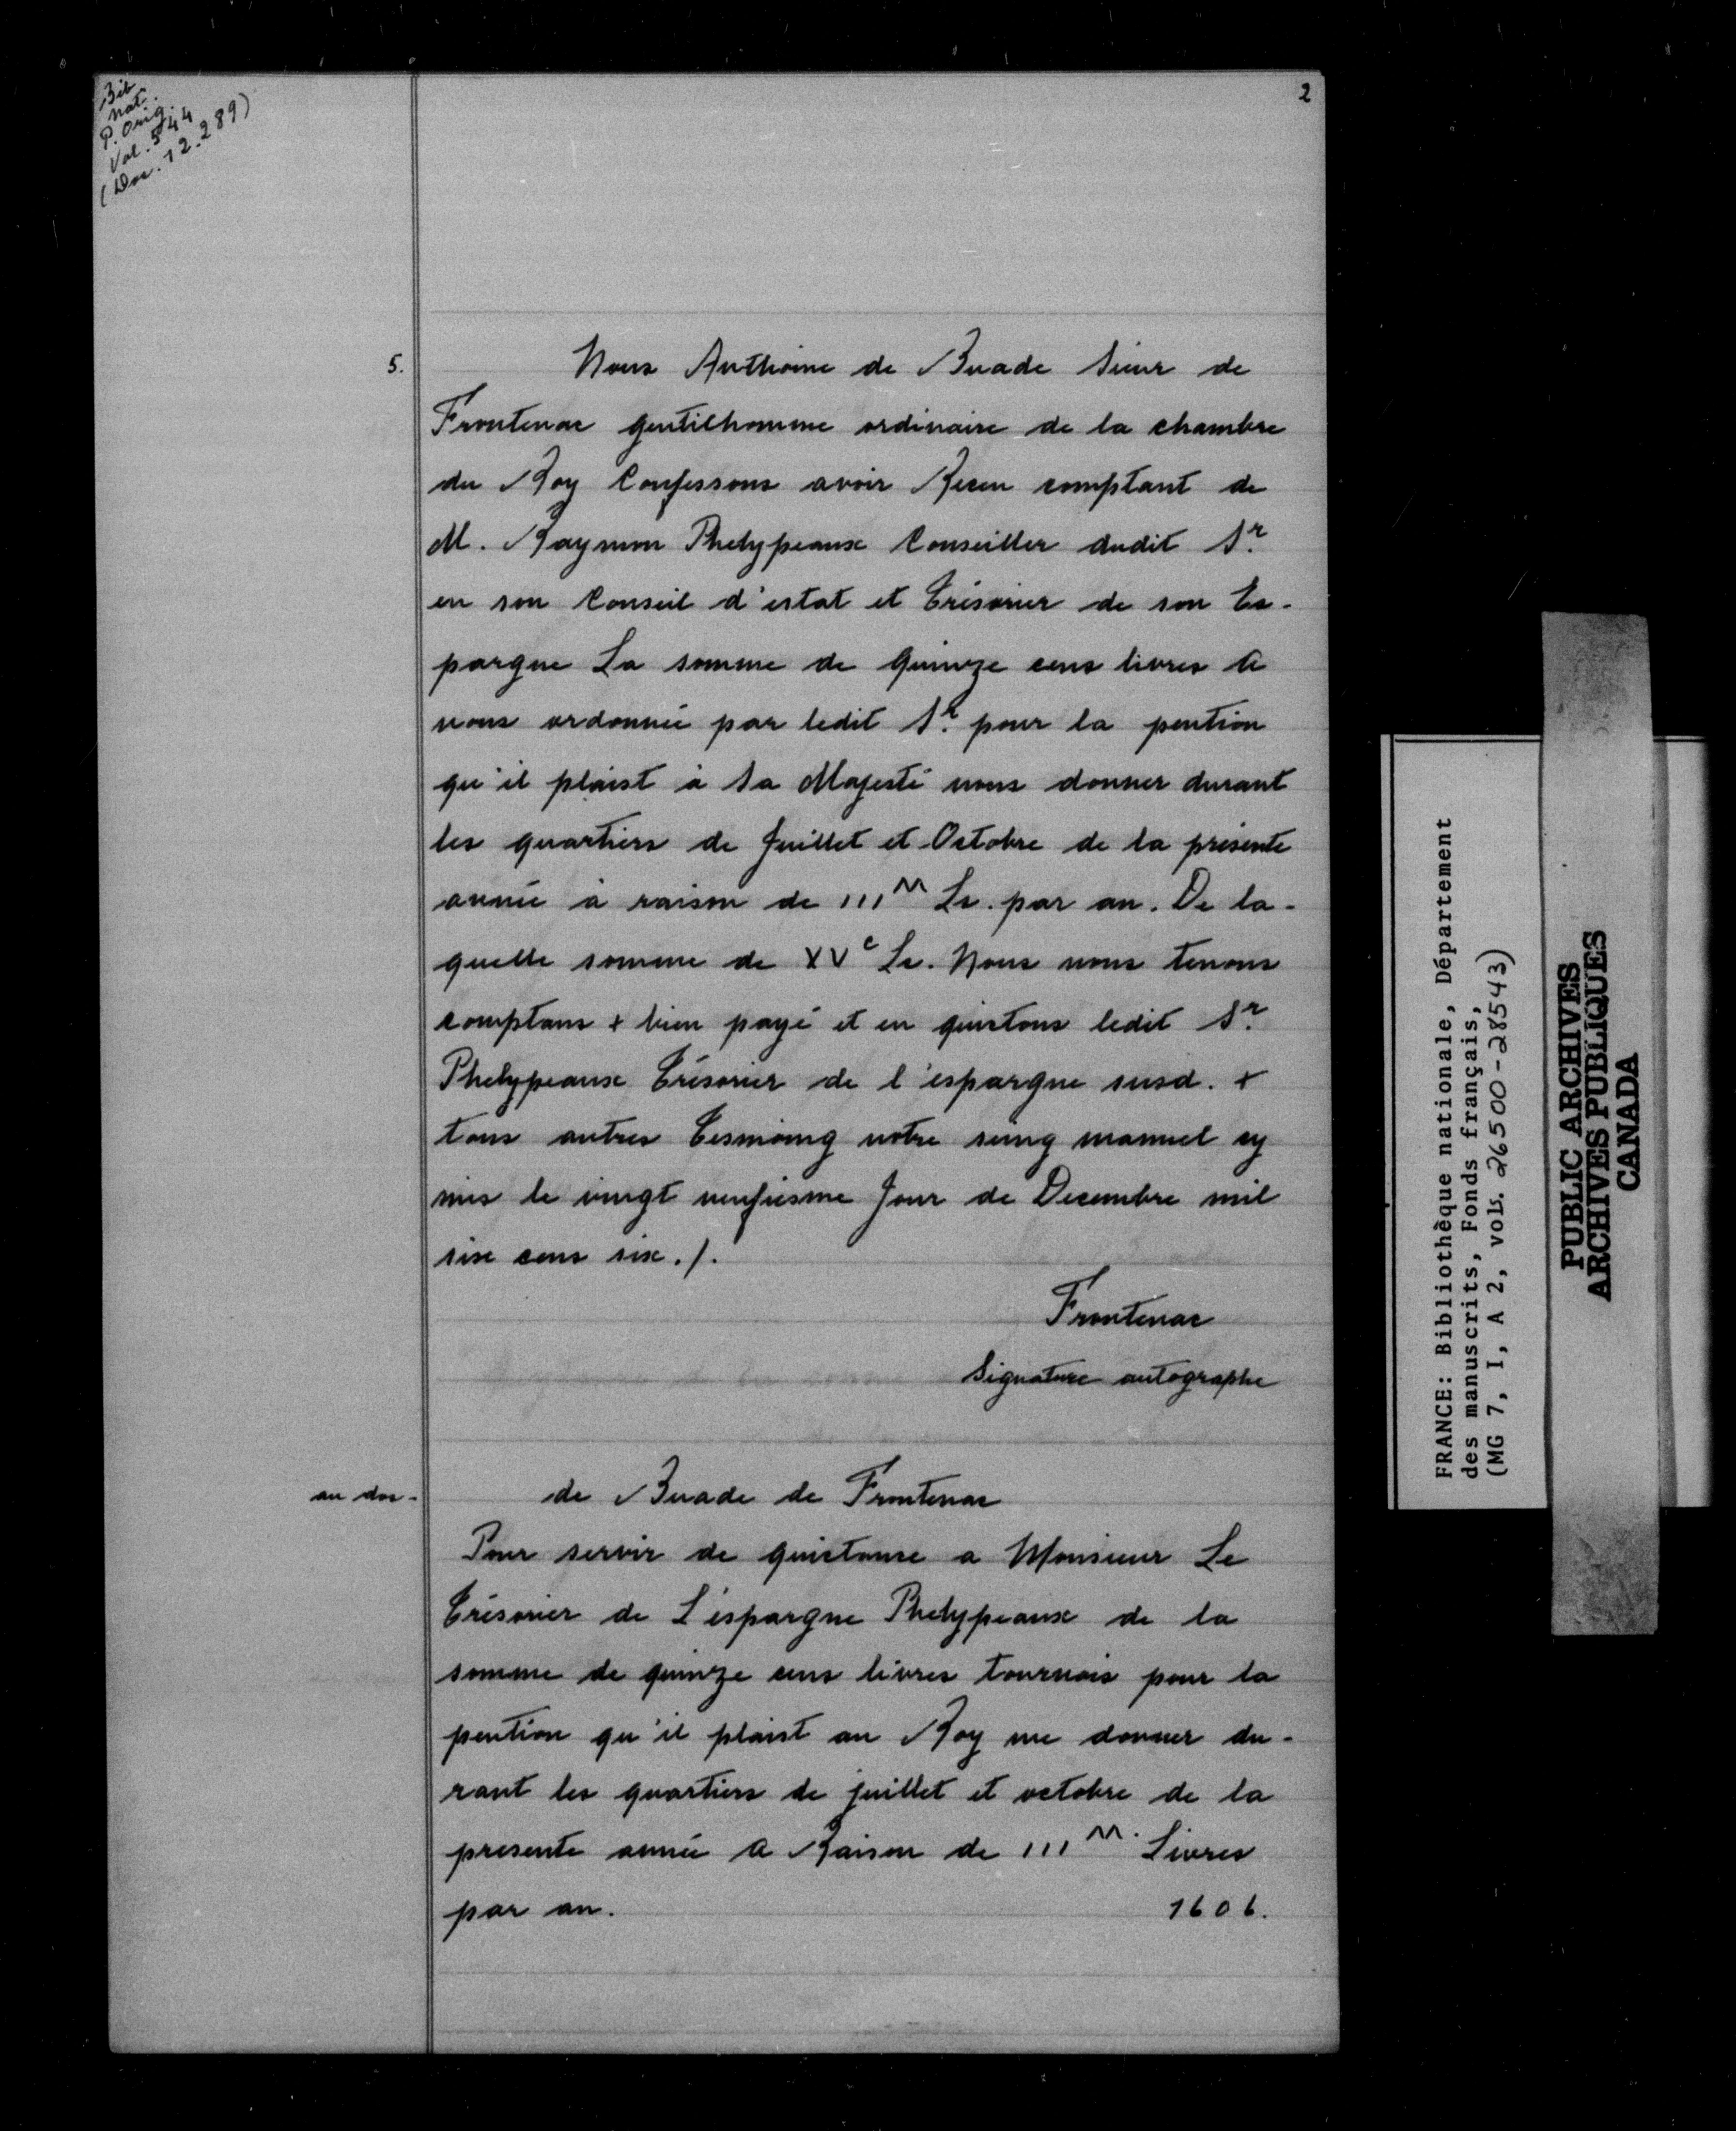 2
Bib
nat.
P. Orig.
Vol. 544
(Dos. 12.289)
5.
Nous Anthoine de Buade Sieur de
Frontenac gentilhomme ordinaire de la chambre
du Roy Confessons avoir Receu comptant de
M. Raymon Phelypeaux Conseiller dudit Sr.
en son Conseil d'estat et Trésorier de son Es-
pargne La somme de quinze cens livres a
nous ordonnée par ledit Sr. pour la pention
qu'il plaist à Sa Majesté nous donner durant
les quartiers de Juillet et Octobre de la présente
année à raison de IIIM Ls. par an. De la-
quelle somme de XVc Ls. Nous nous tenons
comptans + bien payé et en quictons ledit Sr.
Phelypeaux Trésorier de l'espargne susd. +
tous autres Tesmoing notre seing manuel cy
mis le vingt neufiesme Jour de Decembre mil
six cens six ./.
Frontenac
Signature autographe
au dos-
de Buade de Frontenac
Pour servir de quictance a Monsieur Le
Trésorier de L'éspargne Phelypeaux de la
somme de quinze cens livres tournois pour la
pention qu'il plaist au Roy me donner du-
rant les quartiers de juillet et octobre de la
presente année a Raison de IIIM. Livres
par an. 1606.
FRANCE: Bibliothèque nationale, Département
des manuscrits, Fonds français,
(MG 7, I, A 2, vols. 26500-28543)
PUBLIC ARCHIVES
ARCHIVES PUBLIQUES
CANADA